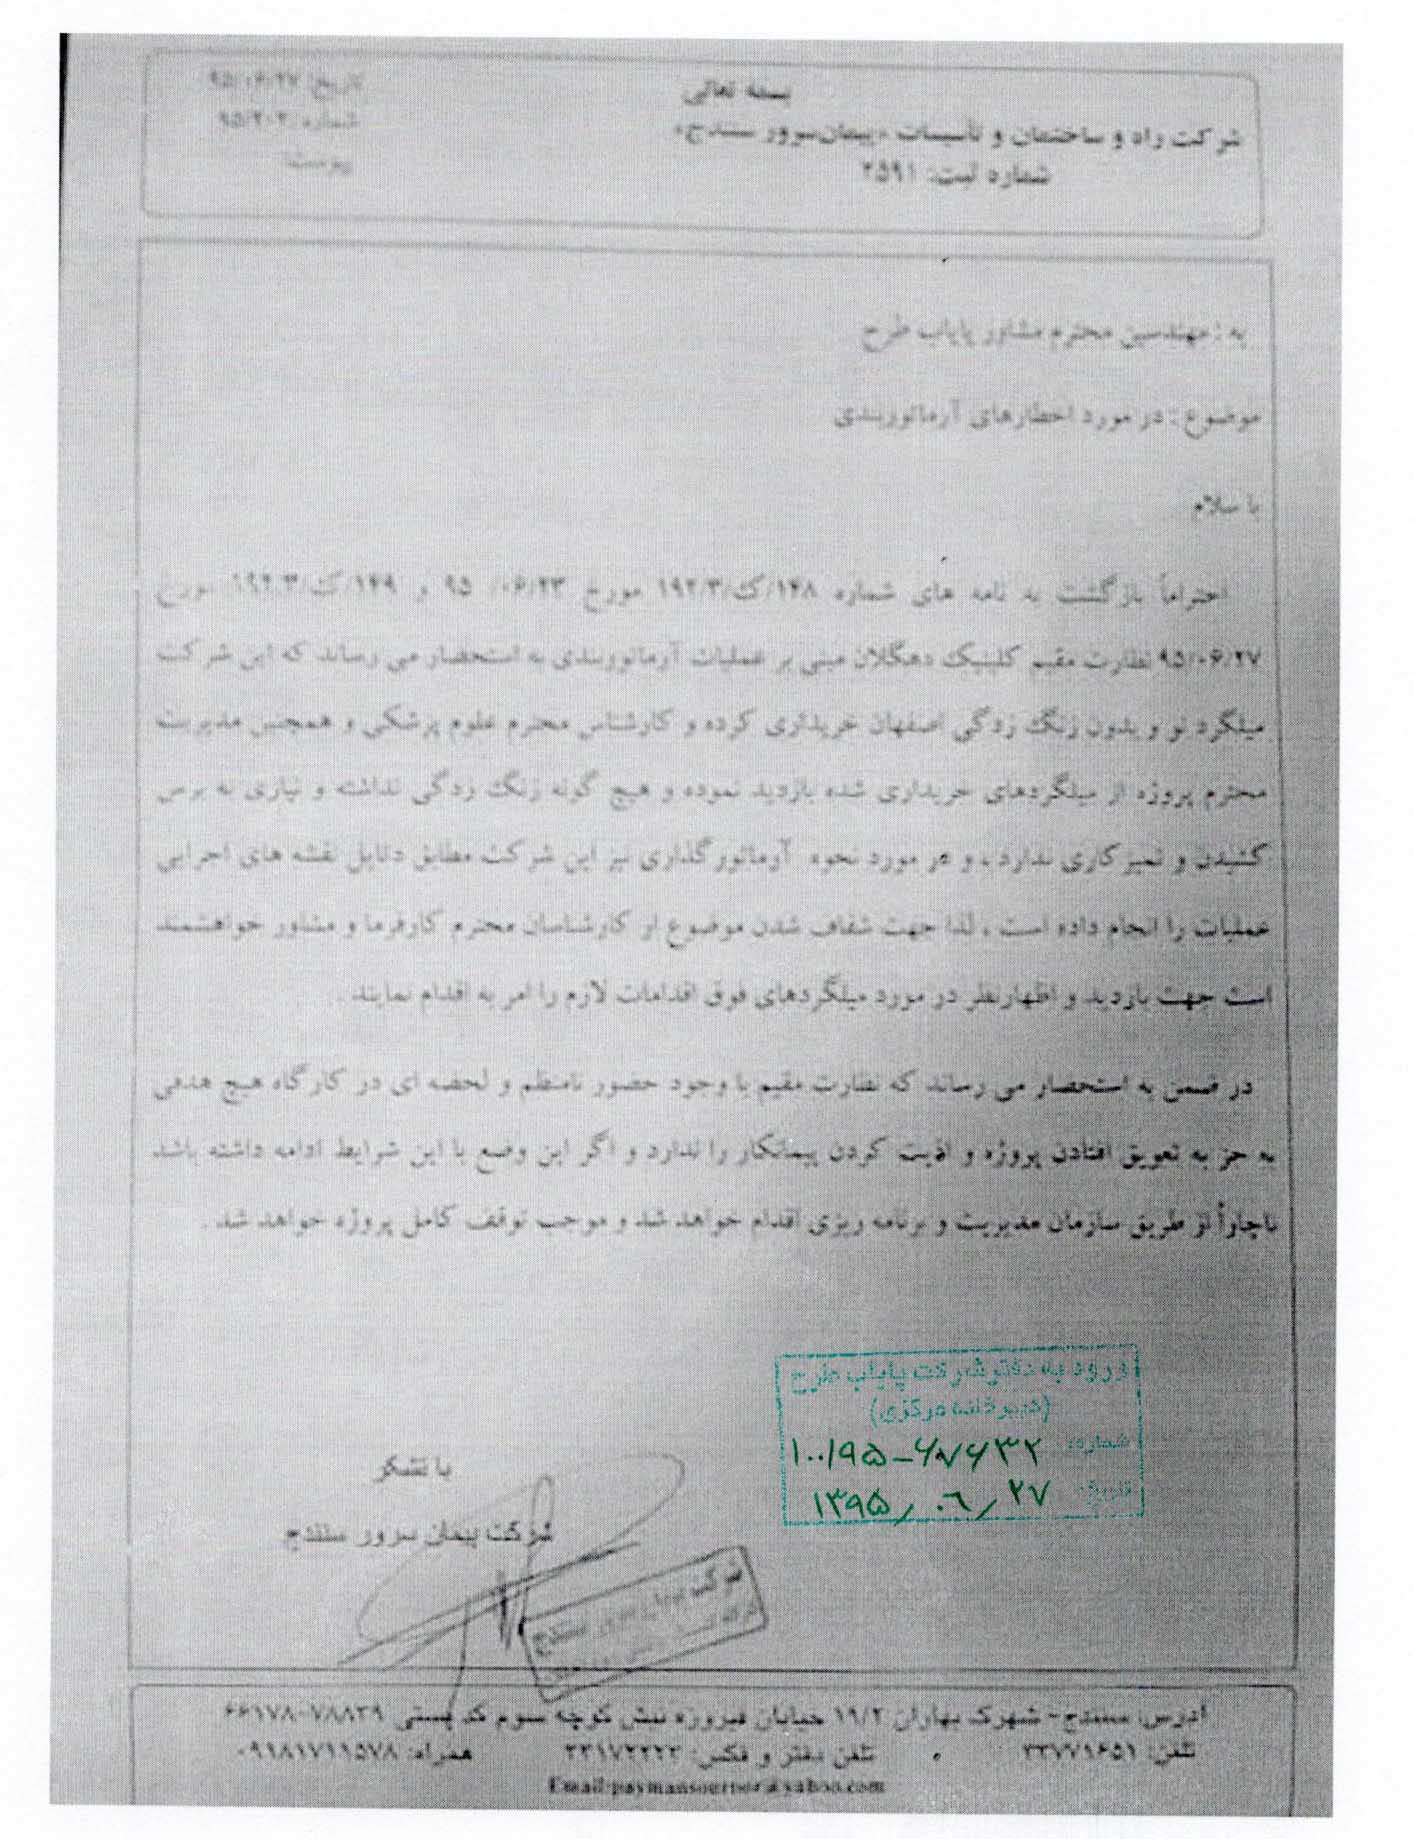 بسمه تعالی
شرکت راه و ساختمان و تأسیسات «پیمان سرور سنندج»
شماره ثبت: ۲۵۹۱
تاریخ: ۹۵/۰۶/۲۷
شماره: ۹۵/۲۰۲
پیوست:
به : مهندسین محترم مشاور پایاب طرح
موضوع : در مورد اخطارهای آرماتوربندی
با سلام
احتراماً بازگشت به نامه های شماره ۱۴۸/ک/۱۹۲/۳ مورخ ۰۶/۲۳/ ۹۵ و ۱۴۹/ک/۱۹۲.۳ مورخ
۹۵/۰۶/۲۷ نظارت مقیم کلینیک دهگلان مبنی بر عملیات آرماتوربندی به استحضار می رساند که این شرکت
میلگرد نو و بدون زنگ زدگی اصفهان خریداری کرده و کارشناس محترم علوم پزشکی و همچنین مدیریت
محترم پروژه از میلگردهای خریداری شده بازدید نموده و هیچ گونه زنگ زدگی نداشته و نیازی به برس
کشیدن و تمیز کاری ندارد ، و در مورد نحوه آرماتور گذاری نیز این شرکت مطابق دتایل نقشه های اجرایی
عملیات را انجام داده است ، لذا جهت شفاف شدن موضوع از کارشناسان محترم کارفرما و مشاور خواهشمند
است جهت بازدید و اظهارنظر در مورد میلگردهای فوق اقدامات لازم را امر به اقدام نمایند .
در ضمن به استحضار می رساند که نظارت مقیم با وجود حضور نامنظم و لحضه ای در کارگاه هیچ هدفی
به جز به تعویق افتادن پروژه و اذیت کردن پیمانکار را ندارد و اگر این وضع با این شرایط ادامه داشته باشد
ناچاراً از طریق سازمان مدیریت و برنامه ریزی اقدام خواهد شد و موجب توقف کامل پروژه خواهد شد .
ورود به دفتر شرکت پایاب طرح
(دبیرخانه مرکزی)
شماره: ۱۰۰/۹۵-۶۷۶۳۲
تاریخ: ۱۳۹۵/۰۶/۲۷
با تشکر
شرکت پیمان سرور سنندج
شرکت پیمان سرور سنندج
آدرس: سنندج - شهرک بهاران ۱۹/۲ خیابان فیروزه نبش کوچه سوم کد پستی ۷۸۸۳۹-۶۶۱۷۸
تلفن: ۳۳۷۷۱۶۵۱ تلفن دفتر و فکس: ۳۳۱۷۲۲۲۳ همراه: ۰۹۱۸۱۷۱۱۵۷۸